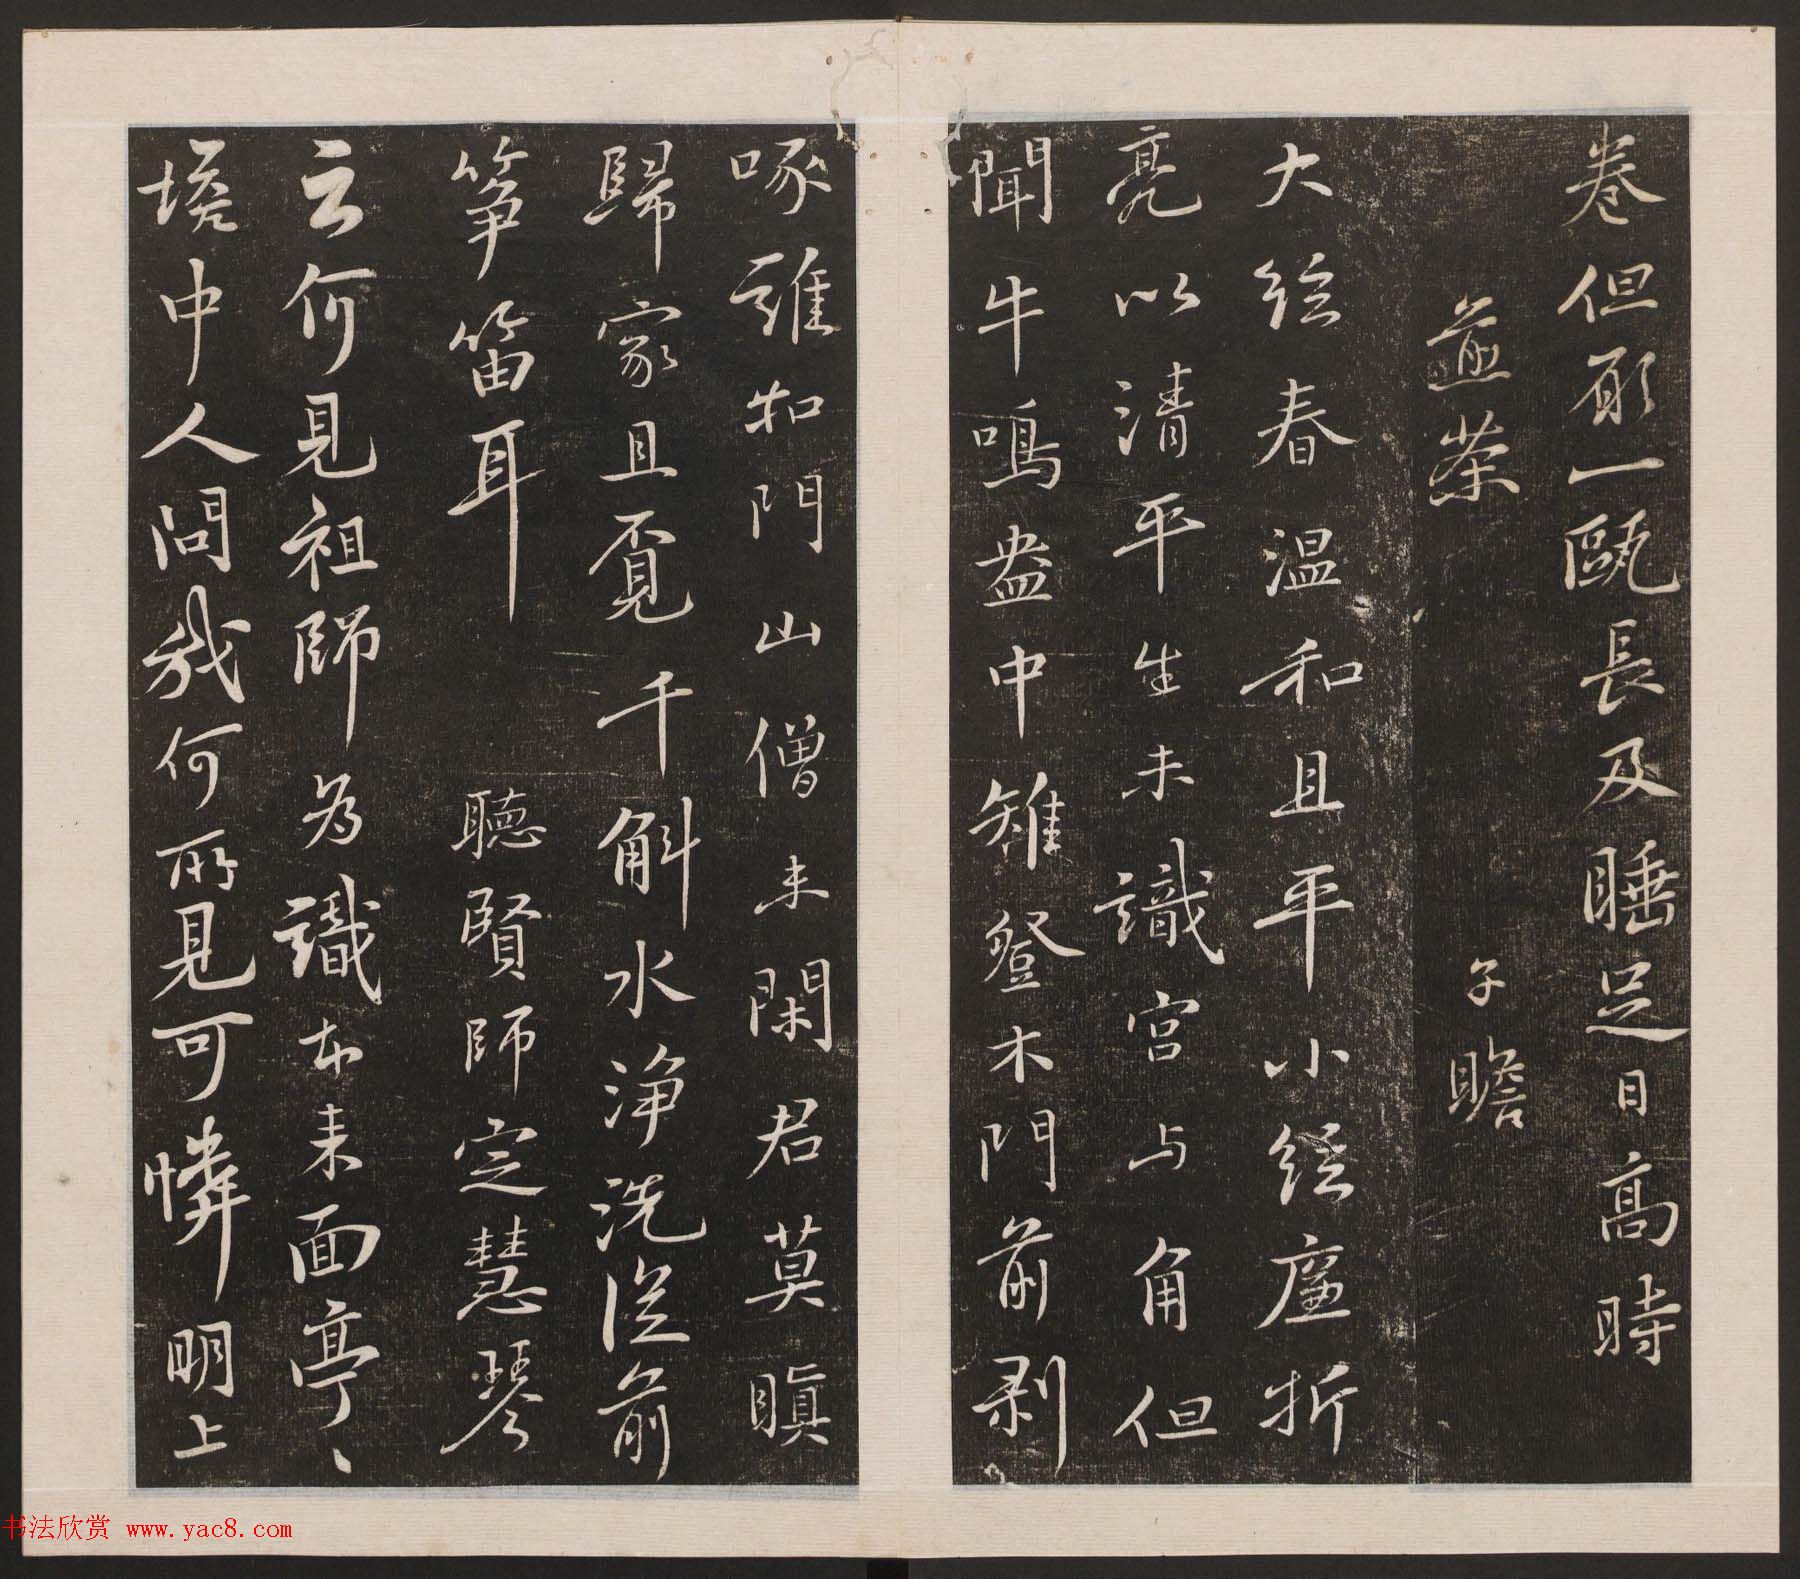 卷但願一甌長及睡足日高時
煎茶　子瞻
大絃春温和且平小絃廉折
亮以清平生未識宫与角但
聞牛鳴盎中雉登木門前剥
啄誰扣門山僧未閑君莫瞋
歸家且覓千斛水淨洗從前
筝笛耳　聽賢師定慧琴
云何見祖師為識本来面亭〻
塔中人問我何所見可憐明上
书法欣赏 www.yac8.com